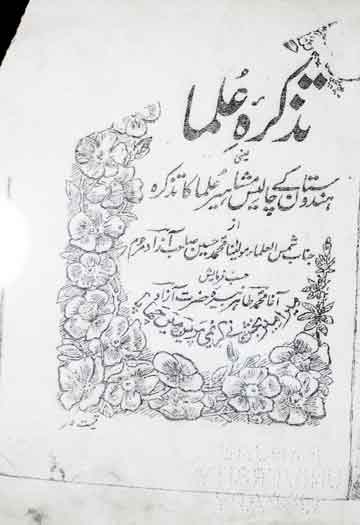 تذکرۂ عُلما
یعنی
ہندوستان کے چالیس مشاہیر عُلما کا تذکرہ
از
جناب شمس العلماء مولٰینا محمد حسین صاحب آزاد مرحوم
حسب فرمایش
آغا محمد طاہر نبیرۂ حضرت آزاد
قیمت